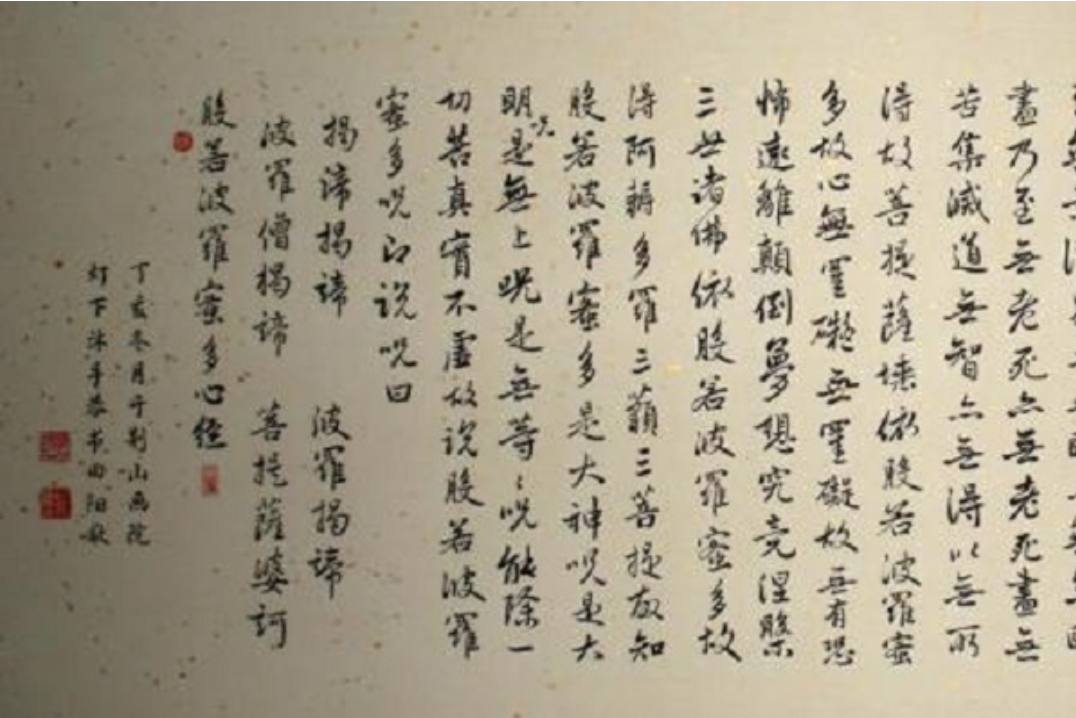 盡乃至無老死亦無老死盡無
苦集滅道無智亦無得以無所
得故菩提薩埵依般若波羅蜜
多故心無罣礙無罣礙故無有恐
怖遠離顛倒夢想究竟涅槃
三世諸佛依般若波羅蜜多故
得阿耨多羅三藐三菩提故知
般若波羅蜜多是大神呪是大
明呪是無上呪是無等〻呪能除一
切苦真實不虛故說般若波羅
蜜多呪即說呪曰
揭諦揭諦 波羅揭諦
波羅僧揭諦 菩提薩婆訶
般若波羅蜜多心經
丁亥冬月于荆山画院
灯下沐手恭書曲阳